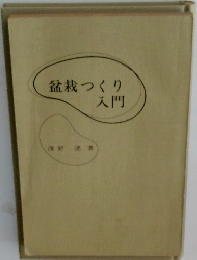 盆栽つくり
入門